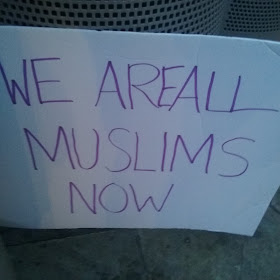 WE ARE ALL
MUSLIMS
NOW